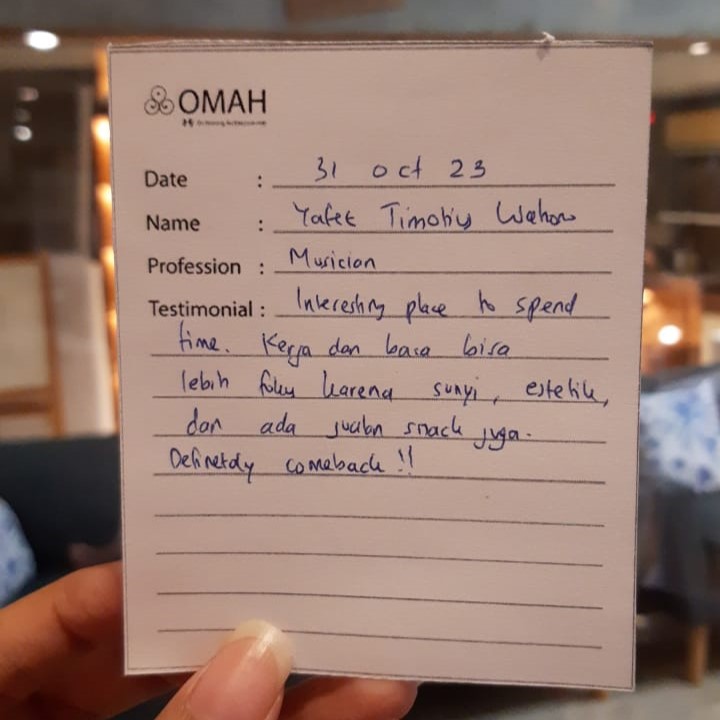 OMAH
Date : 31 oct 23
Name : Yafet Timotius
Profession : Musician
Testimonial : Interesting place to spend
time. Kerja dan baca bisa
lebih fokus karena sunyi, estetik,
dan ada jualan snack juga.
Definetely comeback !!